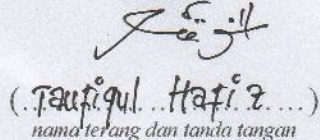 (..Taufiqul...Hafiz.....)
nama terang dan tanda tangan